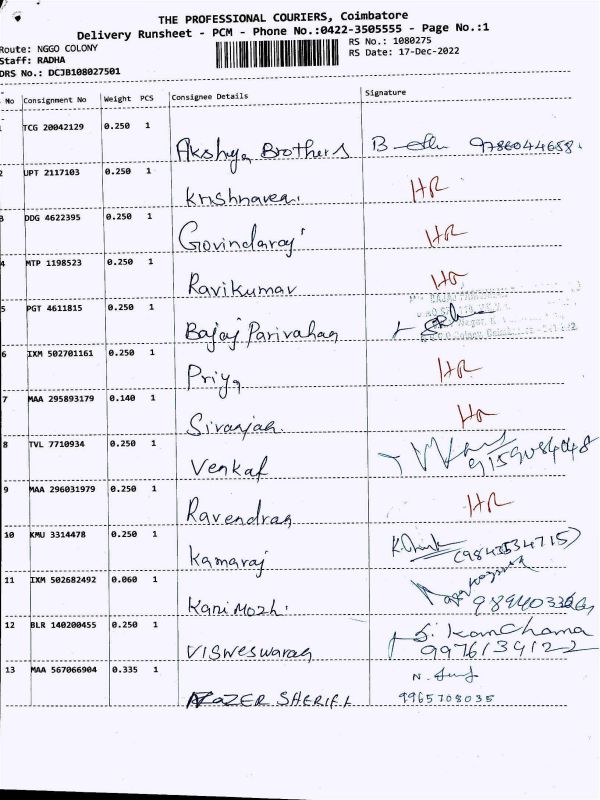 THE PROFESSIONAL COURIERS, Coimbatore
Delivery Runsheet - PCM - Phone No.:0422-3505555 - Page No.:1
Route: NGGO COLONY
RS No.: 1080275
Staff: RADHA
RS Date: 17-Dec-2022
DRS No.: DCJB108027501
No Consignment No Weight PCS Consignee Details Signature
TCG 20042129 0.250 1 Akshya Brothers 9786044658
2 UPT 2117103 0.250 1 Krishnaveni HR
3 DDG 4622395 0.250 1 Govindaraj HR
4 MTP 1198523 0.250 1 Ravikumar HR
5 PGT 4611815 0.250 1 Bajaj Parivahan
6 IXM 502701161 0.250 1 Priya HR
7 MAA 295893179 0.140 1 Siranjan HR
8 TVL 7710934 0.250 1 Venkat 9159084048
9 MAA 296031979 0.250 1 Ravendran HR
10 KMU 3314478 0.250 1 Kamaraj (9843534715)
11 IXM 502682492 0.060 1 Kani Mozhi
12 BLR 140200455 0.250 1 Visweswaran S. Kanchama
9976139122
13 MAA 567066904 0.335 1 NAZER SHERIFF
9965708035